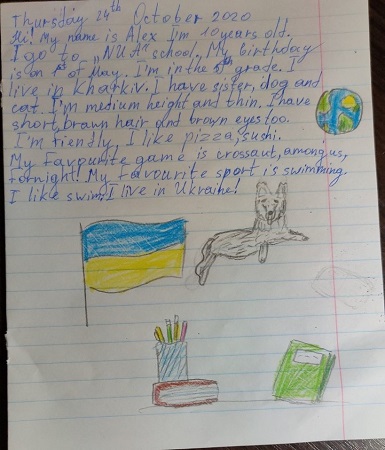 Thursday 24th October 2020
Hi! My name is Alex I'm 10 years old.
I go to „NUA" school, My birthday
is on 1st of May. I'm in the 5th grade. I
live in Kharkiv. I have sister, dog and
cat. I'm medium height and thin. I have
short, brawn hair and brown eyes too.
I'm friendly, I like pizza, sushi.
My favourite game is crossaut, among us,
fortnight! My favourite sport is swimming.
I like swim. I live in Ukraine!